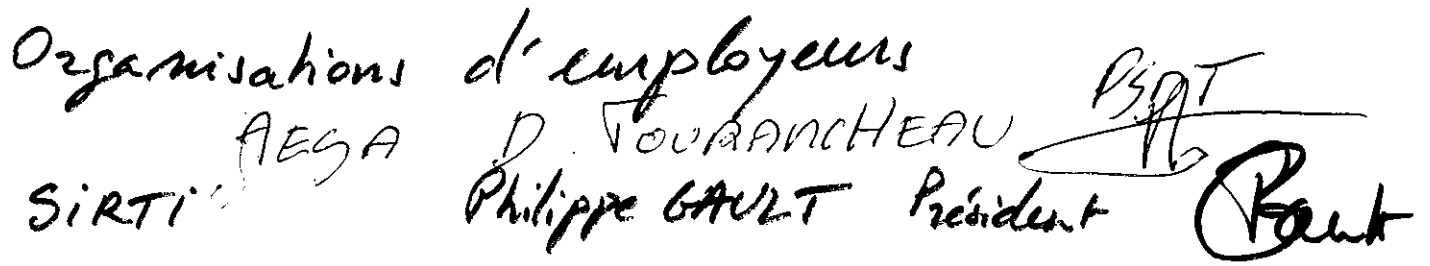 Organisations d'employeurs
AESA D. TOURANCHEAU
SiRTi Philippe GAULT Président